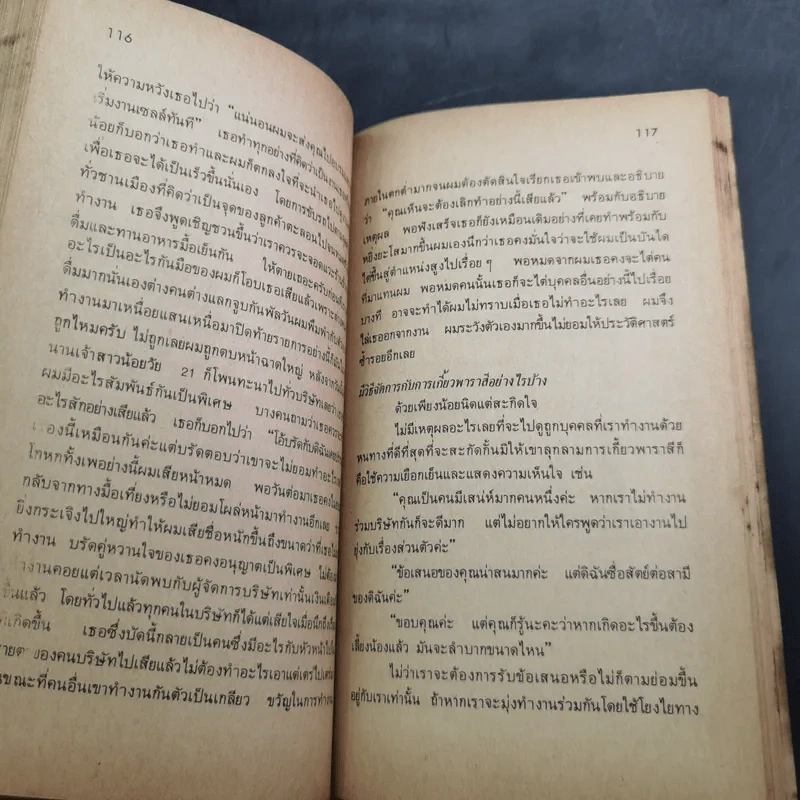 116
ให้ความหวังเธอไปว่า “แน่นอนผมจะส่งคุณไป
เริ่มงานเซลล์ทันที” เธอทำทุกอย่างที่คิดว่าเป็นงาน
น้อยก็บอกว่าเธอทำและผมก็ตกลงใจที่จะนำเธอไป
เพื่อเธอจะได้เป็นเร็วขึ้นนั่นเอง โดยการขับรถไป
ทั่วชานเมืองที่คิดว่าเป็นจุดของลูกค้าตะลอนไปจน
ทำงาน เธอจึงพูดเชิญชวนขึ้นว่าเราควรจะจอดแวะ
ดื่มและทานอาหารมื้อเย็นกัน ให้ตายเถอะครับก่อน
อะไรเป็นอะไรกันมือของผมก็โอบเธอเสียแล้วเพราะ
ดื่มมากนั่นเองต่างคนต่างแลกจูบกันพัลวันผมพึมพำกับตัว
ทำงานมาเหนื่อยแสนเหนื่อมาปิดท้ายรายการอย่างนี้ก็
ถูกไหมครับ ไม่ถูกเลยผมถูกตบหน้าฉาดใหญ่ หลังจากวัน
นานเจ้าสาวน้อยวัย 21 ก็โพนทะนาไปทั่วบริษัทเลยว่า
ผมมีอะไรสัมพันธ์กันเป็นพิเศษ บางคนถามว่าเธอควร
อะไรสักอย่างเสียแล้ว เธอก็บอกไปว่า “โอ้บรัดกับดิฉัน
เองนี้เหมือนกันค่ะแต่บรัดตอบว่าเขาจะไม่ยอมทำอะไร
โกหกทั้งเพอย่างนี้ผมเสียหน้าหมด พอวันต่อมาเธอคง
กลับจากทางมื้อเที่ยงหรือไม่ยอมโผล่หน้ามาทำงานอีกเลย
ยิ่งกระเจิงไปใหญ่ทำให้ผมเสียชื่อหนักขึ้นถึงขนาดว่าที่เธอไม่
ทำงาน บรัดคู่หวานใจของเธอคงอนุญาตเป็นพิเศษ ไม่ต้อง
างานคอยแต่เวลานัดพบกับผู้จัดการบริษัทเท่านั้นเงินเดือน
ขึ้นแล้ว โดยทั่วไปแล้วทุกคนในบริษัทก็ได้แต่เสียใจเมื่อนึกถึง
เกิดขึ้น เธอซึ่งบัดนี้กลายเป็นคนซึ่งมีอะไรกับหัวหน้าไป
ของคนบริษัทไปเสียแล้วไม่ต้องทำอะไรเอาแต่เตร่ไป
นขณะที่คนอื่นเขาทำงานกันตัวเป็นเกลียว ขวัญในการทำ
117
ภายในตกต่ำมากจนผมต้องตัดสินใจเรียกเธอเข้าพบและอธิบาย
ว่า “คุณเห็นจะต้องเลิกทำอย่างนี้เสียแล้ว” พร้อมกับอธิบาย
เหตุผล พอฟังเสร็จเธอก็ยังเหมือนเดิมอย่างที่เคยทำพร้อมกับ
หยิ่งยะโสมากขึ้นผมเองนึกว่าเธอคงมั่นใจว่าจะใช้ผมเป็นบันได
ไต่ขึ้นสู่ตำแหน่งสูงไปเรื่อย ๆ พอหมดจากผมเธอคงจะไต่คน
ที่มาแทนผม พอหมดคนนั้นเธอก็จะไต่บุคคลอื่นอย่างนี้ไปเรื่อย
บางที อาจจะทำได้ผมไม่ทราบเมื่อเธอไม่ทำอะไรเลย ผมจึง
ไล่เธอออกจากงาน ผมระวังตัวเองมากขึ้นไม่ยอมให้ประวัติศาสตร์
ซ้ำรอยอีกเลย
มีวิธีจัดการกับการเกี้ยวพาราสีอย่างไรบ้าง
ด้วยเพียงน้อยนิดแต่สะกิดใจ
ไม่มีเหตุผลอะไรเลยที่จะไปดูถูกบุคคลที่เราทำงานด้วย
หนทางที่ดีที่สุดที่จะสะกัดกั้นมิให้เขาลุกลามการเกี้ยวพาราสีก็
คือใช้ความเยือกเย็นและแสดงความเห็นใจ เช่น
“คุณเป็นคนมีเสน่ห์มากคนหนึ่งค่ะ หากเราไม่ทำงาน
ร่วมบริษัทกันก็จะดีมาก แต่ไม่อยากให้ใครพูดว่าเราเอางานไป
ยุ่งกับเรื่องส่วนตัวค่ะ”
“ข้อเสนอของคุณน่าสนมากค่ะ แต่ดิฉันซื่อสัตย์ต่อสามี
ของดิฉันค่ะ”
“ขอบคุณค่ะ แต่คุณก็รู้นะคะว่าหากเกิดอะไรขึ้นต้อง
เลี้ยงน้องแล้ว มันจะลำบากขนาดไหน”
ไม่ว่าเราจะต้องการรับข้อเสนอหรือไม่ก็ตามย่อมขึ้น
อยู่กับเราเท่านั้น ถ้าหากเราจะมุ่งทำงานร่วมกันโดยใช้โยงไยทาง